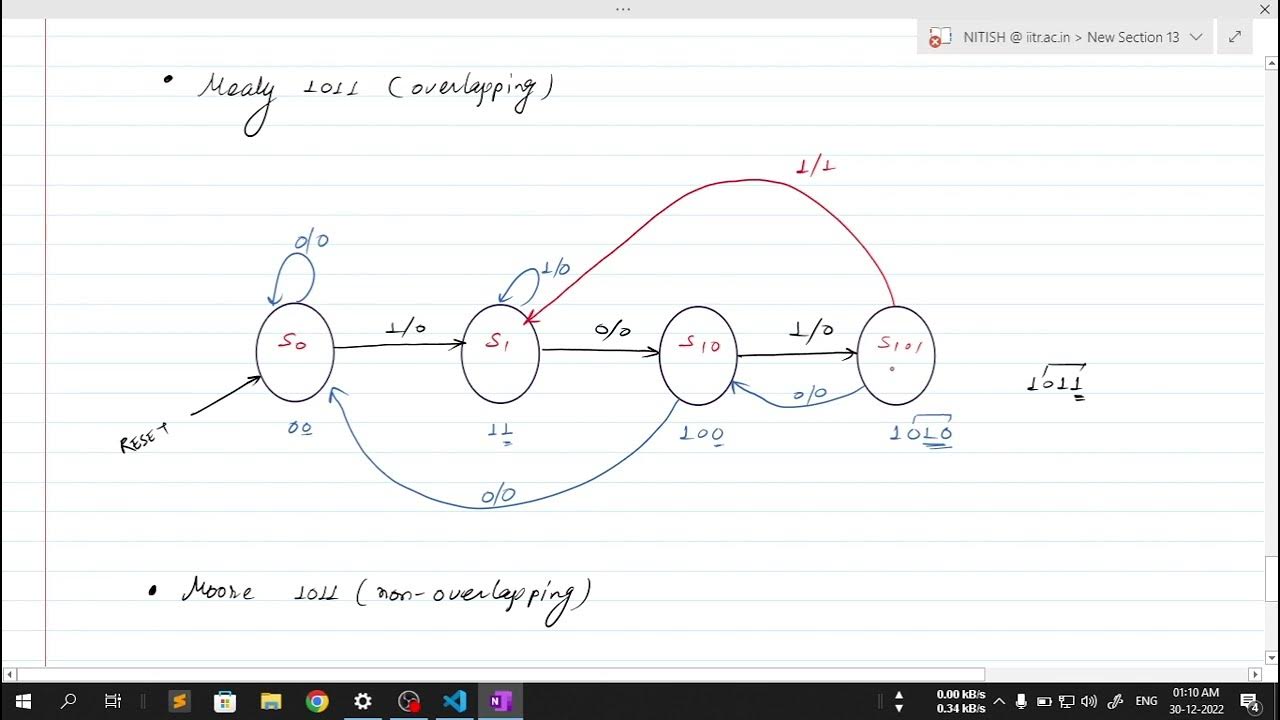 NITISH @ iitr.ac.in > New Section 13
• Mealy 1011 (overlapping)
1/1
0/0
1/0
1/0
0/0
1/0
S0
S1
S10
S101
0/0
1011
RESET
00
11
100
1010
0/0
• Moore 1011 (non-overlapping)
0.00 kB/s
0.34 kB/s
ENG
01:10 AM
30-12-2022
4